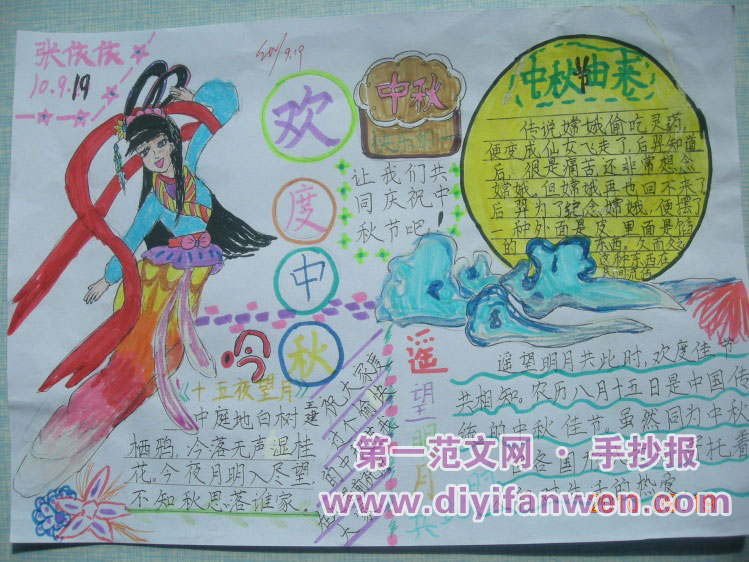 张依依
10.9.19
欢
度
中
秋
中秋
让我们共
同庆祝中
秋节吧!
中秋节由来
传说嫦娥偷吃灵药
便变成仙女飞走了,后羿知道
后,很是痛苦还非常想念
嫦娥,但嫦娥再也回不来了
后羿为了纪念嫦娥,便摆了
一种外面是皮里面是馅
的东西,久而久之
这种东西在
民间流传
吟
《十五夜望月》
王建
中庭地白树
栖鸦,冷落无声湿桂
花。今夜月明入尽望
不知秋思落谁家。
祝大家度
过个愉快
遥
望
明
月
共
遥望明月共此时,欢度佳节
共相知。农历八月十五日是中国传
统的中秋佳节。虽然同为中秋
各国
寄托着
生活的热爱
第一范文网·手抄报
www.diyifanwen.com